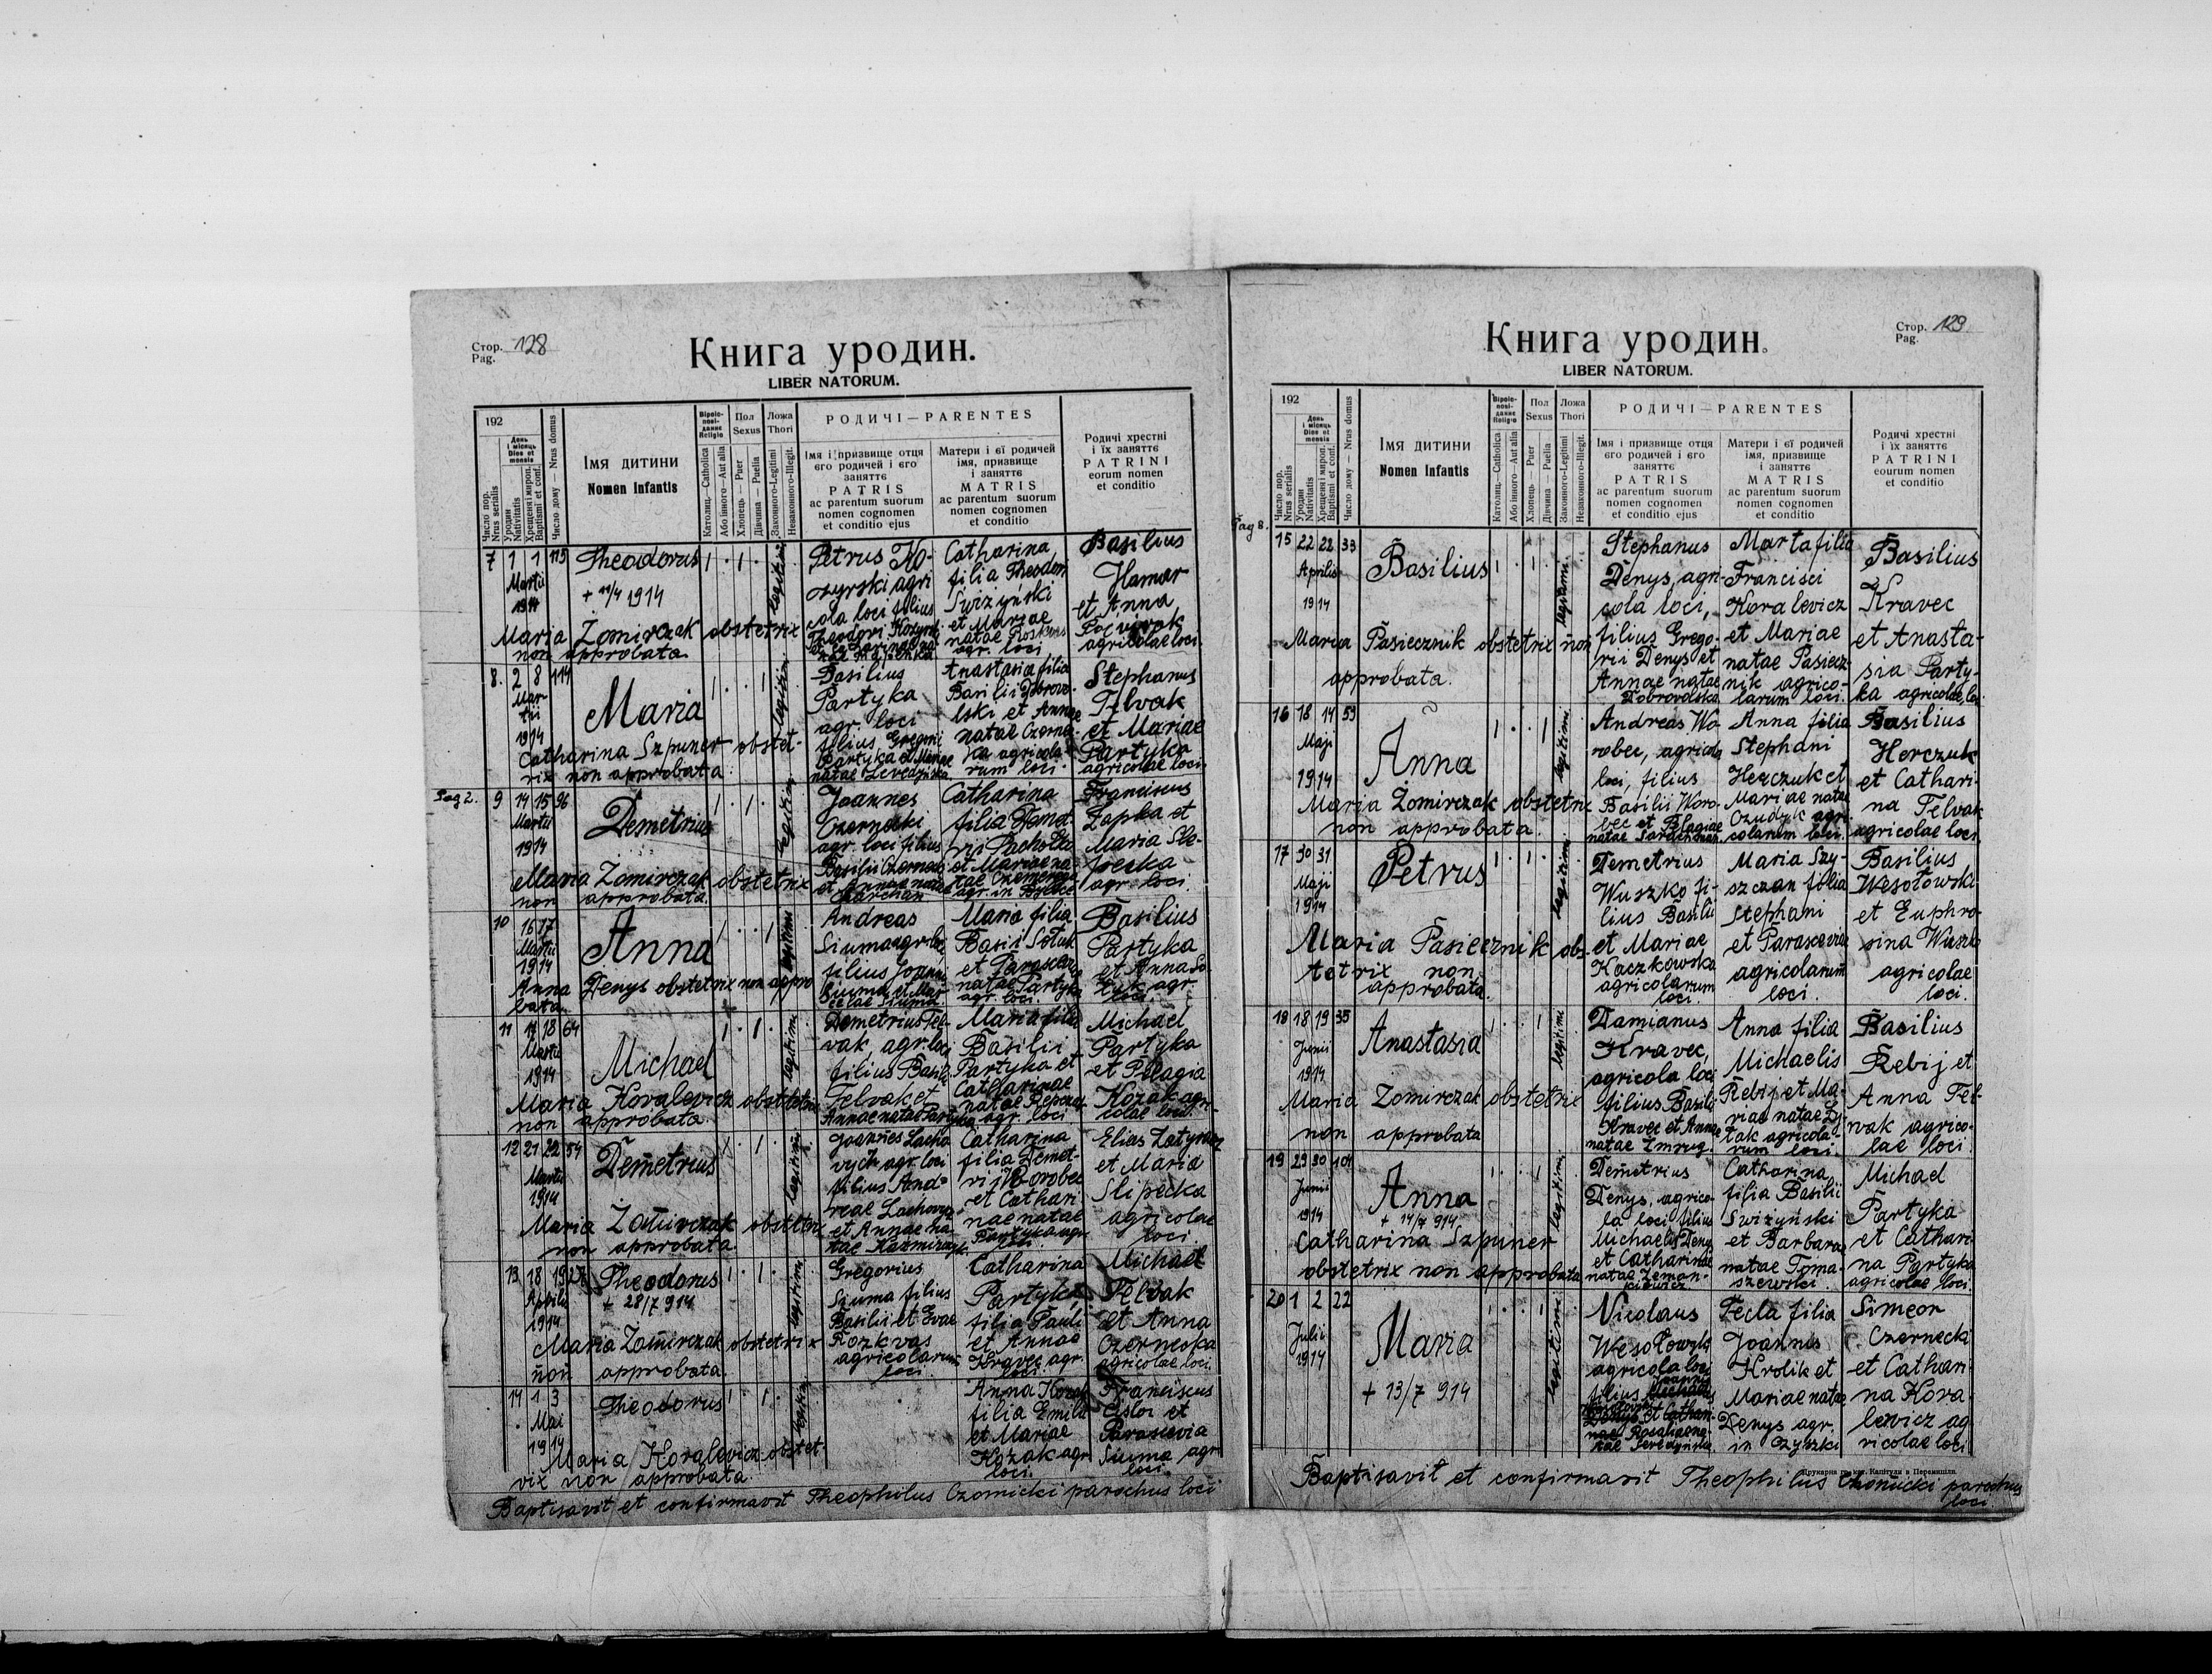 Стор. 128
Pag.
Книга уродин.
LIBER NATORUM.
192
Число пор.
Nrus serialis
День
і місяць
Dies et
mensis
Уродин
Nativitatis
Хрещеня і миропом.
Baptismi et conf.
Число дому — Nrus domus
Імя дитини
Nomen Infantis
Віроіспо-
відание
Religio
Католиц.—Catholica
Або инного—Aut alia
Пол
Sexus
Хлопець — Puer
Дівчина — Puella
Ложа
Thori
Законного-Legitimi
Незаконного-Illegit.
РОДИЧІ—PARENTES
Імя і призвище отця
єго родичей і єго
заняттє
PATRIS
ac parentum suorum
nomen cognomen
et conditio ejus
Матери і єї родичей
імя, призвище
і заняттє
MATRIS
ac parentum suorum
nomen cognomen
et conditio
Родичі хрестні
і їх заняттє
PATRINI
eorum nomen
et conditio
7 1 1 115
Martii
1914
Theodorus
+ 11/4 1914
legitimi
Petrus Ko-
zyrski agri
cola loci filius
Theodori Kozyrski
Catharina
filia Theodori
Swizynski
et Mariae
natae
agr. loci
Basilius
Hamar
et Anna
agricolae loci
Maria Zomirczak obstetrix
non approbata.
8. 2 8 114
Mar
tii
1914
Maria
legitimi
Basilius
Partyka
agr. loci
filius Gregorii
Partyka et Mariae
natae
Anastasia filia
Basilii Dobrovo-
lski et Annae
natae Czerne-
cka agricola-
rum loci
Stephanus
Felvak
et Mariae
Partyka
agricolae loci
Catharina Szpuner obstet-
rix non approbata
Pag 2.
9 14 15 96
Martii
1914
Demetrius
legitimi
Joannes
Czernecki
agr. loci filius
Basilii Czernecki
et Annae natae
Catharina
filia Demet-
rii
et Mariae na
tae
agr. in
Franciscus
Zapka et
Maria Sli-
pecka
agr. loci
Maria Zomirczak obstetrix
non approbata.
10 16 17
Martii
1914
Anna
legitimi
Andreas
Siuma agr. loci
filius Joannis
Siuma et Mar-
Maria filia
Basilii
et Parasceva
natae Partyka
agr. loci.
Basilius
Partyka
et Anna
agr.
loci.
Anna Denys obstetrix non appro
bata.
11 17 18 64
Martii
1914
Michael
legitimi
Demetrius Fel-
vak, agr. loci
filius Basilii
Felvak et
Annae natae Partyka
Maria filia
Basilii
Partyka et
Catharinae
natae
agr. loci
Michael
Partyka
et Pelagia
Kozak agri-
colae loci
Maria Kovalevicz obstetrix
non approbata.
12 21 22 54
Martii
1914
Demetrius
legitimi
Joannes Lacho
vych agr. loci
filius And-
reae
et Annae na-
tae
Catharina
filia Demet-
rii Worobec
et Cathari
nae natae
Partyka agr.
loci
Elias
et Maria
Slipecka
agricolae
loci
Maria Zomirczak obstetrix
non approbata
13 18 19 27
Aprilis
1914
Theodorus
+ 28/7 914
legitimi
Gregorius
Siuma filius
Basilii et Evae
Rozkvas
agricolarum
loci.
Catharina
Partyka
filia Pauli
et Annae
Kravec agr.
loci
Michael
Felvak
et Anna
Czernecka
agricolae loci
Maria Zomirczak obstetrix
non approbata
14 1 3
Mai
1914
Theodorus
legitimi
Anna Kozak
filia
et Mariae
Kozak agr
loci
Franciscus
et
Parascevia
Siuma agr
loci
Maria Kovalevicz obstet-
rix non approbata
Baptisavit et confirmavit Theophilus Czomicki parochus loci
Стор. 129
Pag.
Книга уродин.
LIBER NATORUM.
192
Число пор.
Nrus serialis
День
і місяць
Dies et
mensis
Уродин
Nativitatis
Хрещеня і миропом.
Baptismi et conf.
Число дому — Nrus domus
Імя дитини
Nomen Infantis
Віроіспо-
відание
Religio
Католиц.—Catholica
Або инного—Aut alia
Пол
Sexus
Хлопець — Puer
Дівчина — Puella
Ложа
Thori
Законного-Legitimi
Незаконного-Illegit.
РОДИЧІ—PARENTES
Імя і призвище отця
єго родичей і єго
заняттє
PATRIS
ac parentum suorum
nomen cognomen
et conditio ejus
Матери і єї родичей
імя, призвище
і заняттє
MATRIS
ac parentum suorum
nomen cognomen
et conditio
Родичі хрестні
і їх заняттє
PATRINI
eourum nomen
et conditio
Pag 8.
15 22 22 33
Aprilis
1914
Basilius
legitimi
Stephanus
Denys, agri-
cola loci,
filius Grego-
rii Denys et
Annae natae
Dobrovolska
Marta filia
Francisci
Koralevicz
et Mariae
natae Pasiecz-
nik agrico-
larum loci.
Basilius
Kravec
et Anasta-
sia Party-
ka agricolae loci
Maria Pasiecznik obstetrix non
approbata.
16 18 14 53
Maji
1914
Anna
legitimi
Andreas Wo-
robec, agricola
loci, filius
Basilii Woro-
bec et Pelagiae
natae
Anna filia
Stephani
Herczuk et
Mariae natae
agri-
colarum loci.
Basilius
Herczuk
et Cathari-
na Felvak
agricolae loci
Maria Zomirczak obstetrix
non approbata.
17 30 31
Maji
1914
Petrus
legitimi
Demetrius
Wuszko fi-
lius Basilii
et Mariae
Kaczkowska
agricolarum
loci.
Maria Szy-
szczan filia
Stephani
et Parasceviae
agricolarum
loci.
Basilius
Wesołowski
et Euphro-
sina Wuszko
agricolae
loci.
Maria Pasiecznik obs-
tetrix non
approbata.
18 18 19 35
Junii
1914
Anastasia
legitimi
Damianus
Kravec,
agricola loci
filius Basilii
Kravec et Annae
natae Zmrug.
Anna filia
Michaelis
Rebij et Ma-
riae natae
agricola-
rum loci.
Basilius
Rebij et
Anna Fel-
wak agrico-
lae loci.
Maria Zomirczak obstetrix
non approbata
19 29 30 104
Junii
1914
Anna
+ 14/7 914
legitimi
Demetrius
Denys, agrico-
la loci filius
Michaelis Denys
et Catharinae
natae Zeman-
kiewicz
Catharina
filia Basilii
Swizyński
et Barbarae
natae Toma-
szewski
Michael
Partyka
et Cathari
na Partyka
agricolae loci
Catharina Szpuner
obstetrix non approbata
20 1 2 22
Julii
1914
Maria
+ 13/7 914
legitimi
Nicolaus
Wesołowski
agricola loci
filius Joannis
et
natae
Tecla filia
Joannis
Krolik et
Mariae natae
Denys agr.
in Czyszki
Simeon
Czernecki
et Cathari
na Kora-
lewicz ag
ricolae loci
Baptisavit et confirmavit Theophilus parochus
loci
Друкарня гр. кат. Капітули в Перемишли.